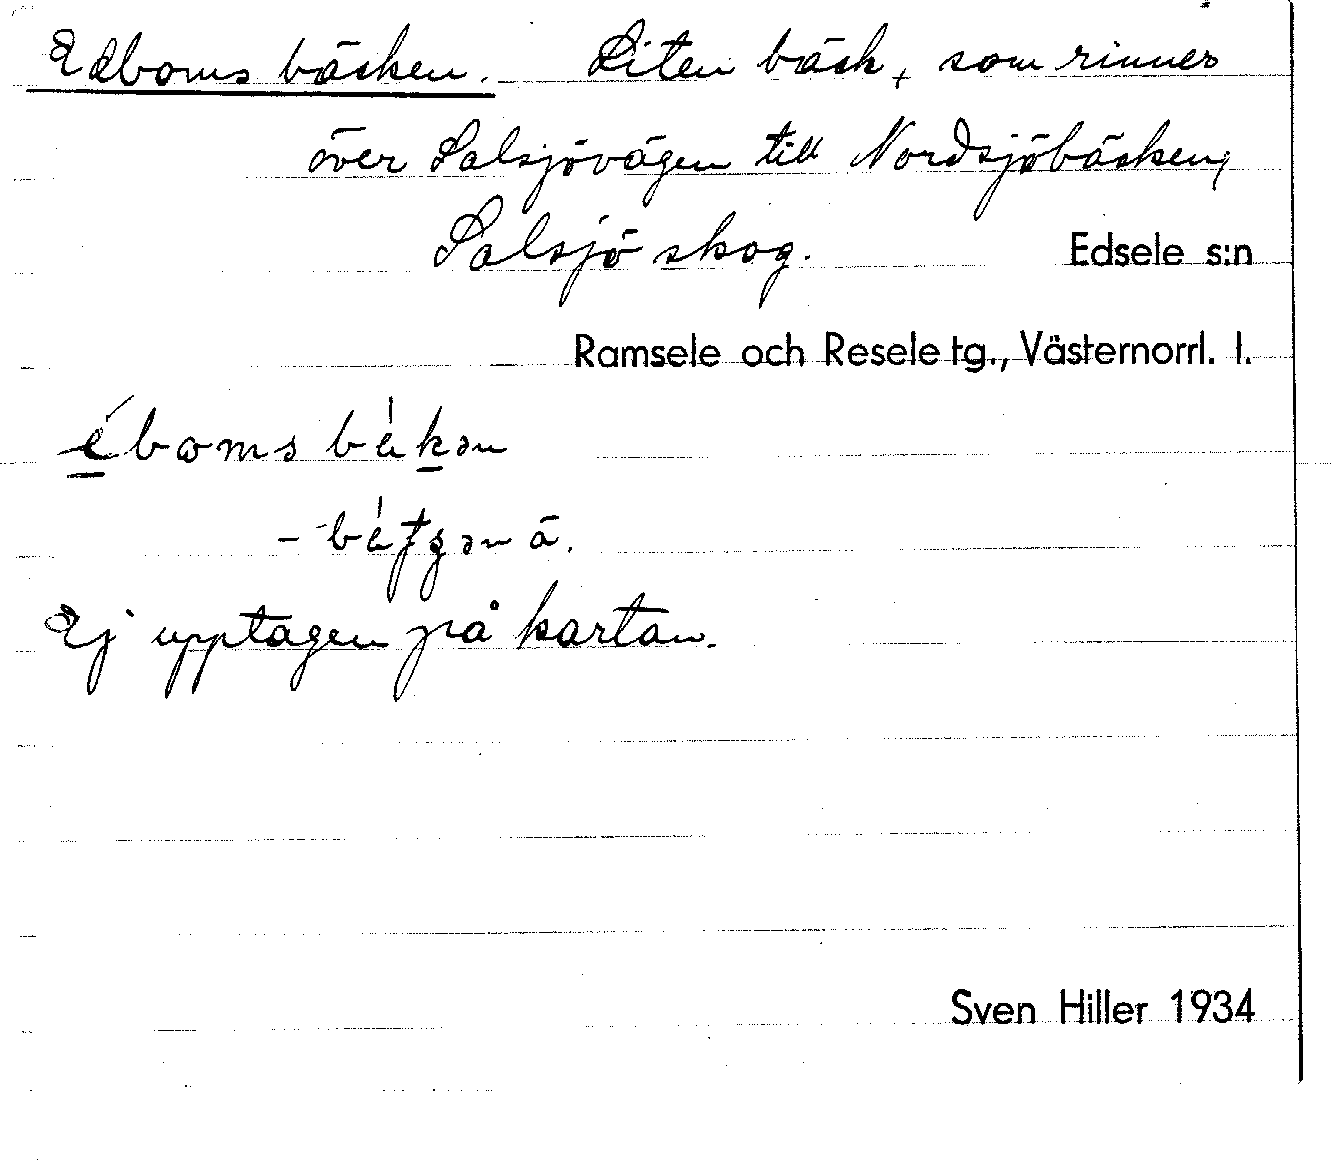 Edboms bäcken. Liten bäck, som rinner
över Salsjövägen till Nordsjöbäcken,
Salsjö skog. Edsele s:n
Ramsele och Resele tg., Västernorrl. l.
Ej upptagen på kartan.
Sven Hiller 1934